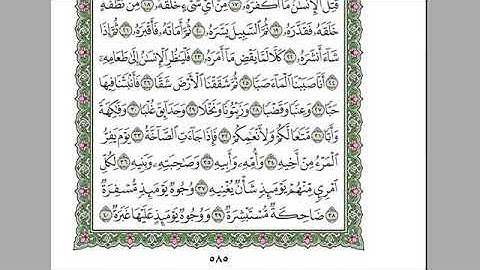 قُتِلَ ٱلْإِنسَٰنُ مَآ أَكْفَرَهُۥ ١٧ مِنْ أَىِّ شَىْءٍ خَلَقَهُۥ ١٨ مِن نُّطْفَةٍ
خَلَقَهُۥ فَقَدَّرَهُۥ ١٩ ثُمَّ ٱلسَّبِيلَ يَسَّرَهُۥ ٢٠ ثُمَّ أَمَاتَهُۥ فَأَقْبَرَهُۥ ٢١ ثُمَّ إِذَا
شَآءَ أَنشَرَهُۥ ٢٢ كَلَّا لَمَّا يَقْضِ مَآ أَمَرَهُۥ ٢٣ فَلْيَنظُرِ ٱلْإِنسَٰنُ إِلَىٰ طَعَامِهِۦٓ
٢٤ أَنَّا صَبَبْنَا ٱلْمَآءَ صَبًّا ٢٥ ثُمَّ شَقَقْنَا ٱلْأَرْضَ شَقًّا ٢٦ فَأَنۢبَتْنَا فِيهَا
حَبًّا ٢٧ وَعِنَبًا وَقَضْبًا ٢٨ وَزَيْتُونًا وَنَخْلًا ٢٩ وَحَدَآئِقَ غُلْبًا ٣٠ وَفَٰكِهَةً
وَأَبًّا ٣١ مَّتَٰعًا لَّكُمْ وَلِأَنْعَٰمِكُمْ ٣٢ فَإِذَا جَآءَتِ ٱلصَّآخَّةُ ٣٣ يَوْمَ يَفِرُّ
ٱلْمَرْءُ مِنْ أَخِيهِ ٣٤ وَأُمِّهِۦ وَأَبِيهِ ٣٥ وَصَٰحِبَتِهِۦ وَبَنِيهِ ٣٦ لِكُلِّ
ٱمْرِئٍ مِّنْهُمْ يَوْمَئِذٍ شَأْنٌ يُغْنِيهِ ٣٧ وُجُوهٌ يَوْمَئِذٍ مُّسْفِرَةٌ
٣٨ ضَاحِكَةٌ مُّسْتَبْشِرَةٌ ٣٩ وَوُجُوهٌ يَوْمَئِذٍ عَلَيْهَا غَبَرَةٌ ٤٠
٥٨٥